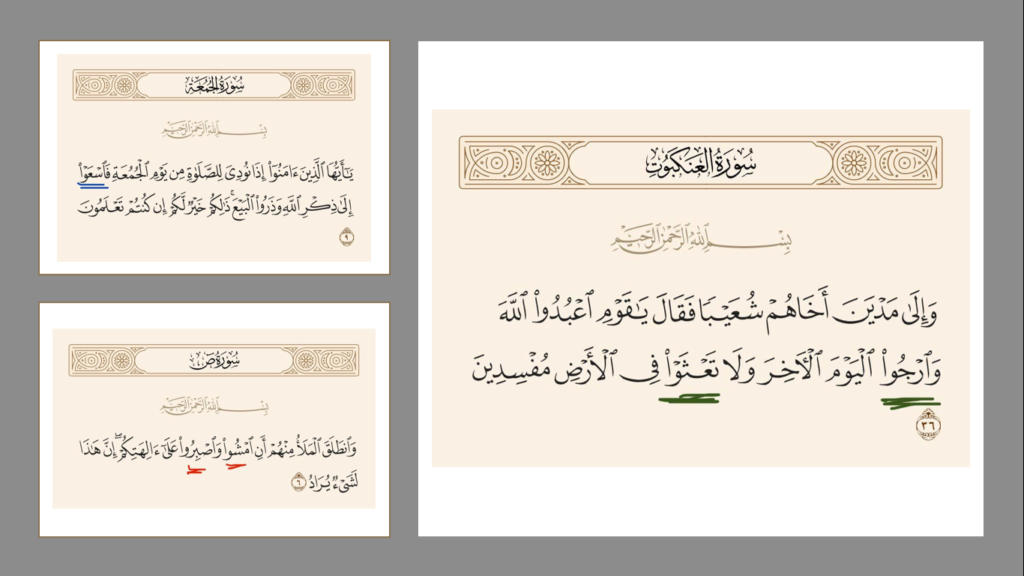 سُورَةُ الجُمُعَةِ
بِسْمِ ٱللَّهِ ٱلرَّحْمَٰنِ ٱلرَّحِيمِ
يَـٰٓأَيُّهَا ٱلَّذِينَ ءَامَنُوٓا۟ إِذَا نُودِىَ لِلصَّلَوٰةِ مِن يَوْمِ ٱلْجُمُعَةِ فَٱسْعَوْا۟
إِلَىٰ ذِكْرِ ٱللَّهِ وَذَرُوا۟ ٱلْبَيْعَ ۚ ذَٰلِكُمْ خَيْرٌ لَّكُمْ إِن كُنتُمْ تَعْلَمُونَ
٩
سُورَةُ صٓ
بِسْمِ ٱللَّهِ ٱلرَّحْمَٰنِ ٱلرَّحِيمِ
وَٱنطَلَقَ ٱلْمَلَأُ مِنْهُمْ أَنِ ٱمْشُوا۟ وَٱصْبِرُوا۟ عَلَىٰٓ ءَالِهَتِكُمْ ۖ إِنَّ هَـٰذَا
لَشَىْءٌ يُرَادُ ٦
سُورَةُ العَنكَبُوتِ
بِسْمِ ٱللَّهِ ٱلرَّحْمَٰنِ ٱلرَّحِيمِ
وَإِلَىٰ مَدْيَنَ أَخَاهُمْ شُعَيْبًا فَقَالَ يَـٰقَوْمِ ٱعْبُدُوا۟ ٱللَّهَ
وَٱرْجُوا۟ ٱلْيَوْمَ ٱلْـَٔاخِرَ وَلَا تَعْثَوْا۟ فِى ٱلْأَرْضِ مُفْسِدِينَ
٣٦